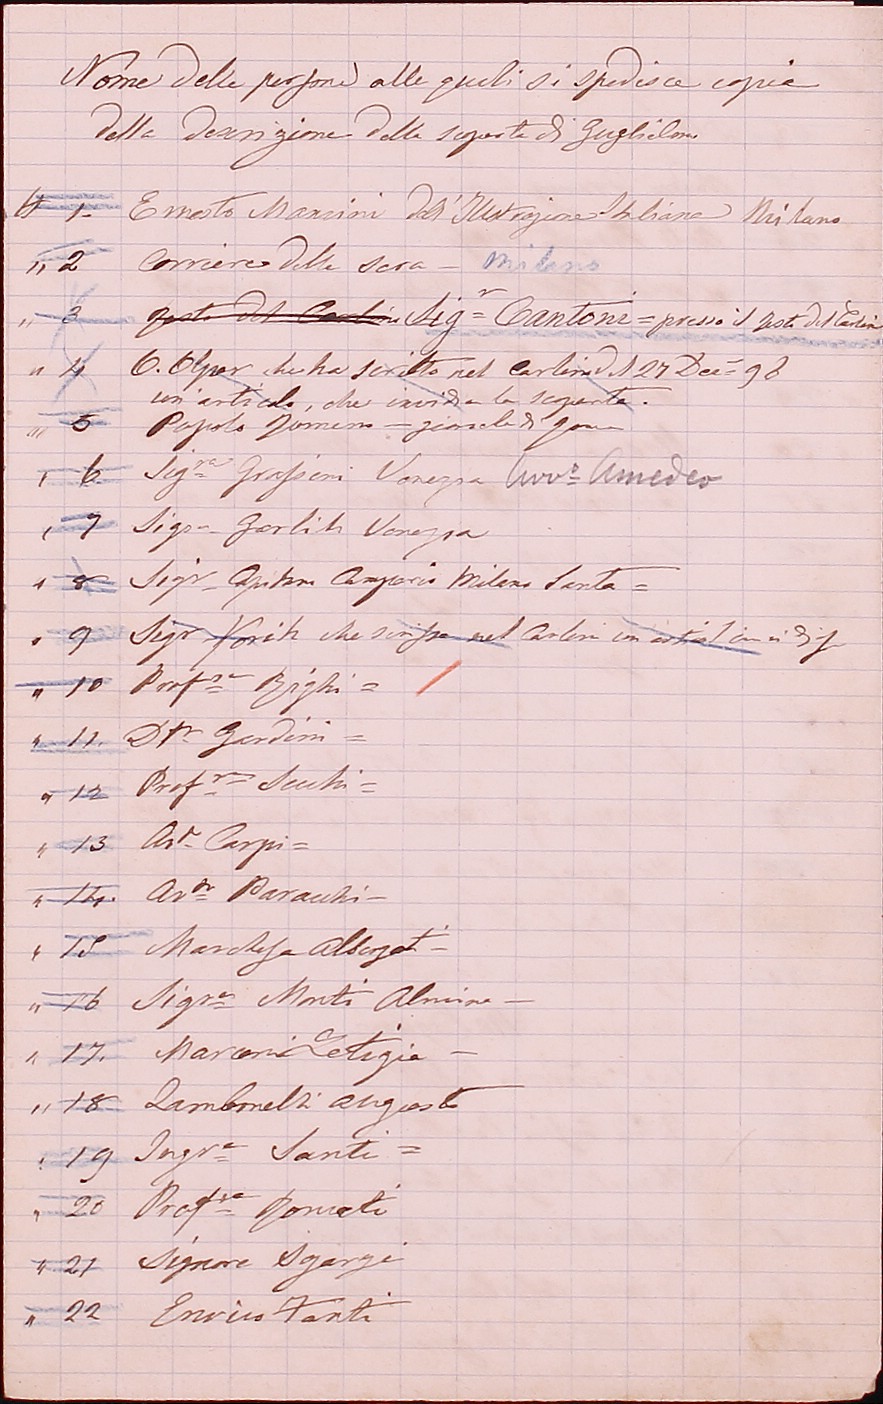 Nome delle persone alle quali si spedisce copia
della descrizione della scoperta di Guglielmo
N 1. Ernesto Mancini dell'Illustrazione Italiana Milano
" 2 Corriere della sera – Milano
" 3 Resto del Carlino Sigr Cantoni = presso il Resto del Carlino
" 4 che ha scritto nel Carlino del 27 Dec= 96
un'articolo, che invidia la scoperta.
" 5 Popolo Romano – giornale di Roma
" 6 Sigra Venezia Avvo Amedeo
" 7 Sigra Venezia
" 8 Sigr Milano Santa =
" 9 Sigr che scrisse nel Carlino un
" 10 Profre Righi =
" 11. Dtr Gardini =
" 12 Profre =
" 13 Avr Carpi =
" 14. Avr –
" 15 Marchesa Albergati –
" 16 Sigra Monti –
" 17. Marconi Letizia –
" 18 Zambonelli Augusto
" 19 Ingre Santi =
" 20 Profre Donati
" 21 Signore Sgarzi
" 22 Enrico Fanti